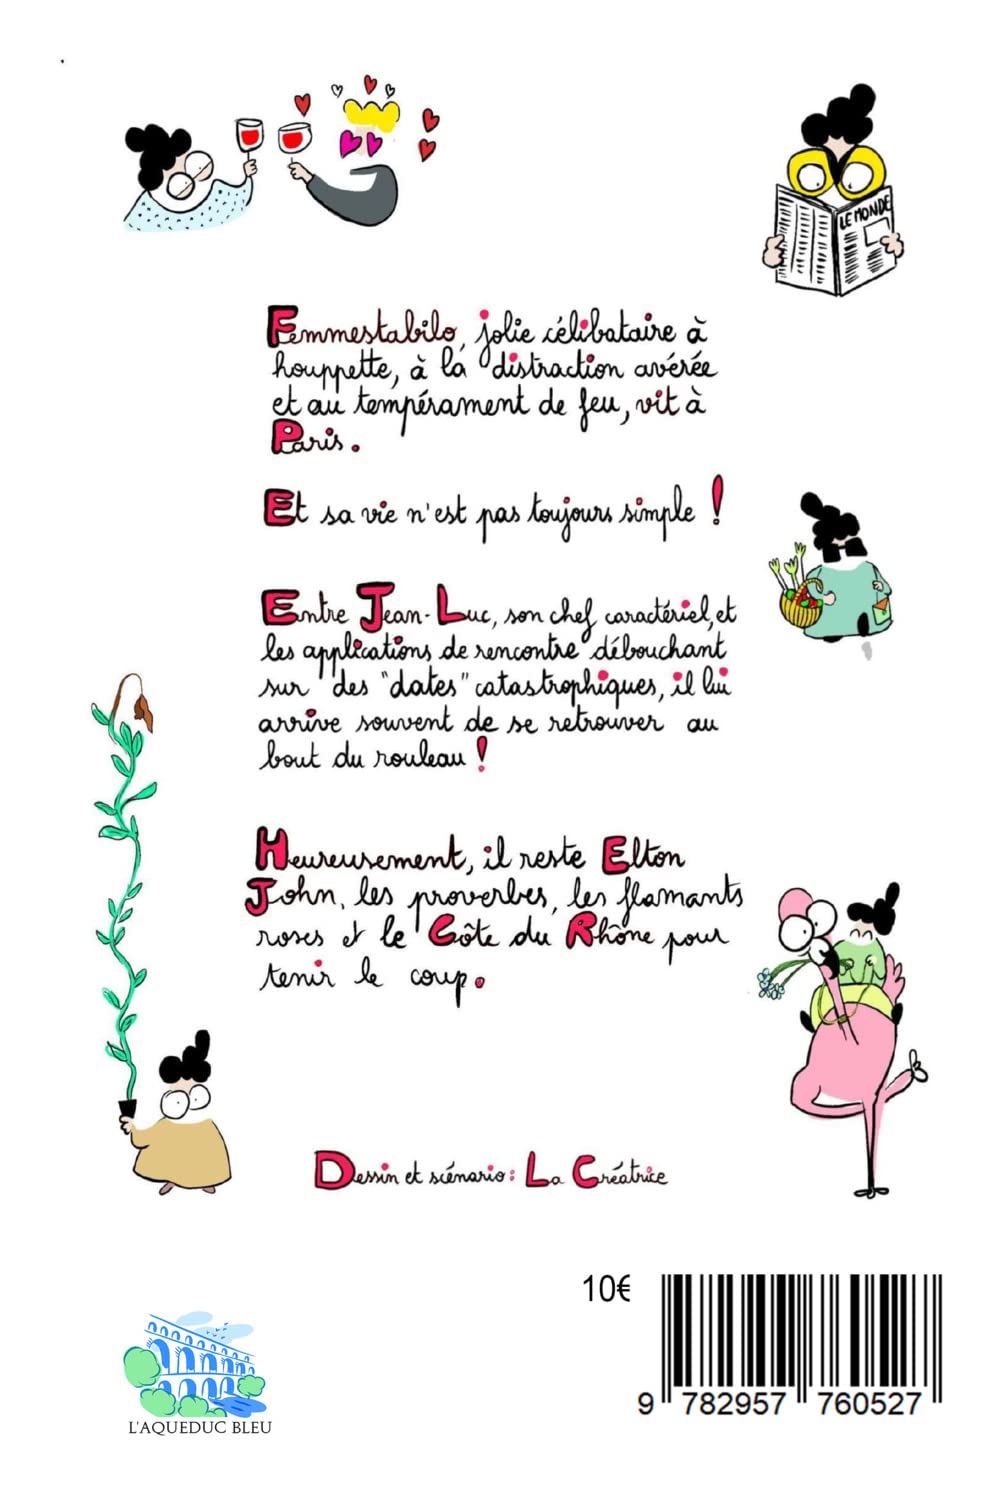 LE MONDE
Femmestabilo, jolie célibataire à
houppette, à la distraction avérée
et au tempérament de feu, vit à
Paris.
Et sa vie n'est pas toujours simple !
Entre Jean-Luc, son chef caractériel, et
les applications de rencontre débouchant
sur des "dates" catastrophiques, il lui
arrive souvent de se retrouver au
bout du rouleau !
Heureusement, il reste Elton
John, les proverbes, les flamants
roses et le Côte du Rhône pour
tenir le coup.
Dessin et scénario : La Créatrice
10€
9 782957 760527
L'AQUEDUC BLEU